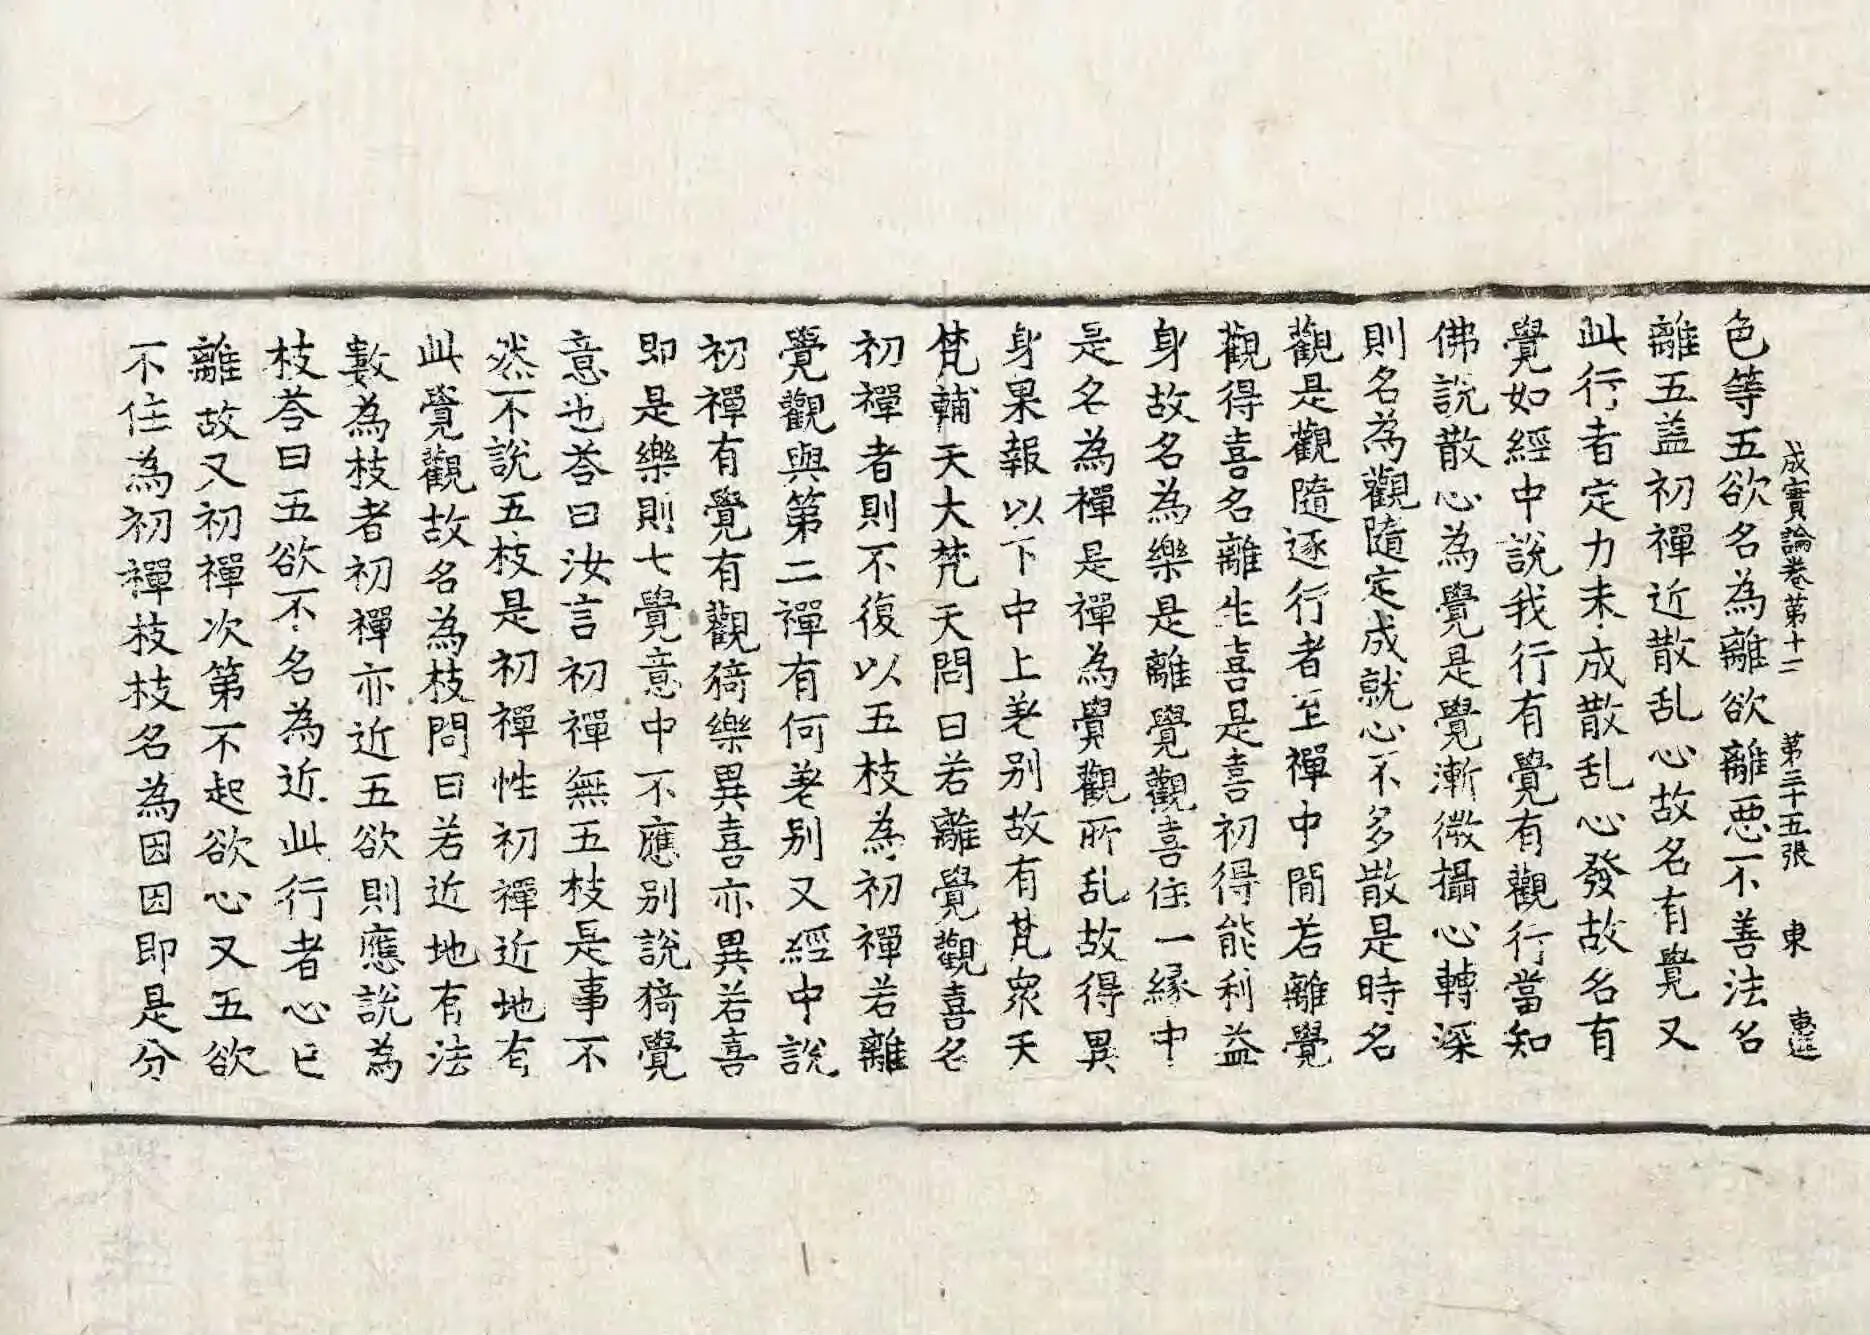 成實論卷第十二　第三十五張　東　惠進
色等五欲名為離欲離惡不善法名
離五盖初禪近散乱心故名有覺又
此行者定力未成散乱心發故名有
覺如經中說我行有覺有觀行當知
佛說散心為覺是覺漸微攝心轉深
則名為觀隨定成就心不多散是時名
觀是觀隨逐行者至禪中閒若離覺
觀得喜名離生喜是喜初得能利益
身故名為樂是離覺觀喜住一緣中
是名為禪是禪為覺觀所乱故得異
身果報以下中上差别故有梵眾天
梵輔天大梵天問曰若離覺觀喜名
初禪者則不復以五枝為初禪若離
覺觀與第二禪有何差别又經中說
初禪有覺有觀猗樂異喜亦異若喜
即是樂則七覺意中不應别說猗覺
意也荅曰汝言初禪無五枝是事不
然不說五枝是初禪性初禪近地有
此覺觀故名為枝問曰若近地有法
數為枝者初禪亦近五欲則應說為
枝荅曰五欲不名為近此行者心已
離故又初禪次第不起欲心又五欲
不住為初禪枝枝名為因因即是分